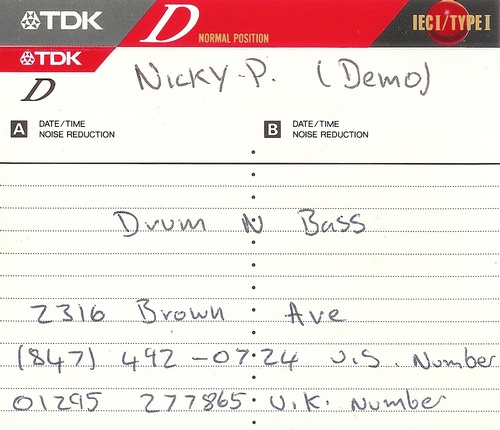 TDK D NORMAL POSITION IECI/TYPE I
TDK
D
Nicky-P. (Demo)
A DATE/TIME NOISE REDUCTION B DATE/TIME NOISE REDUCTION
Drum N Bass
2316 Brown Ave
(847) 492-0724 U.S. Number
01295 277865 U.K. Number